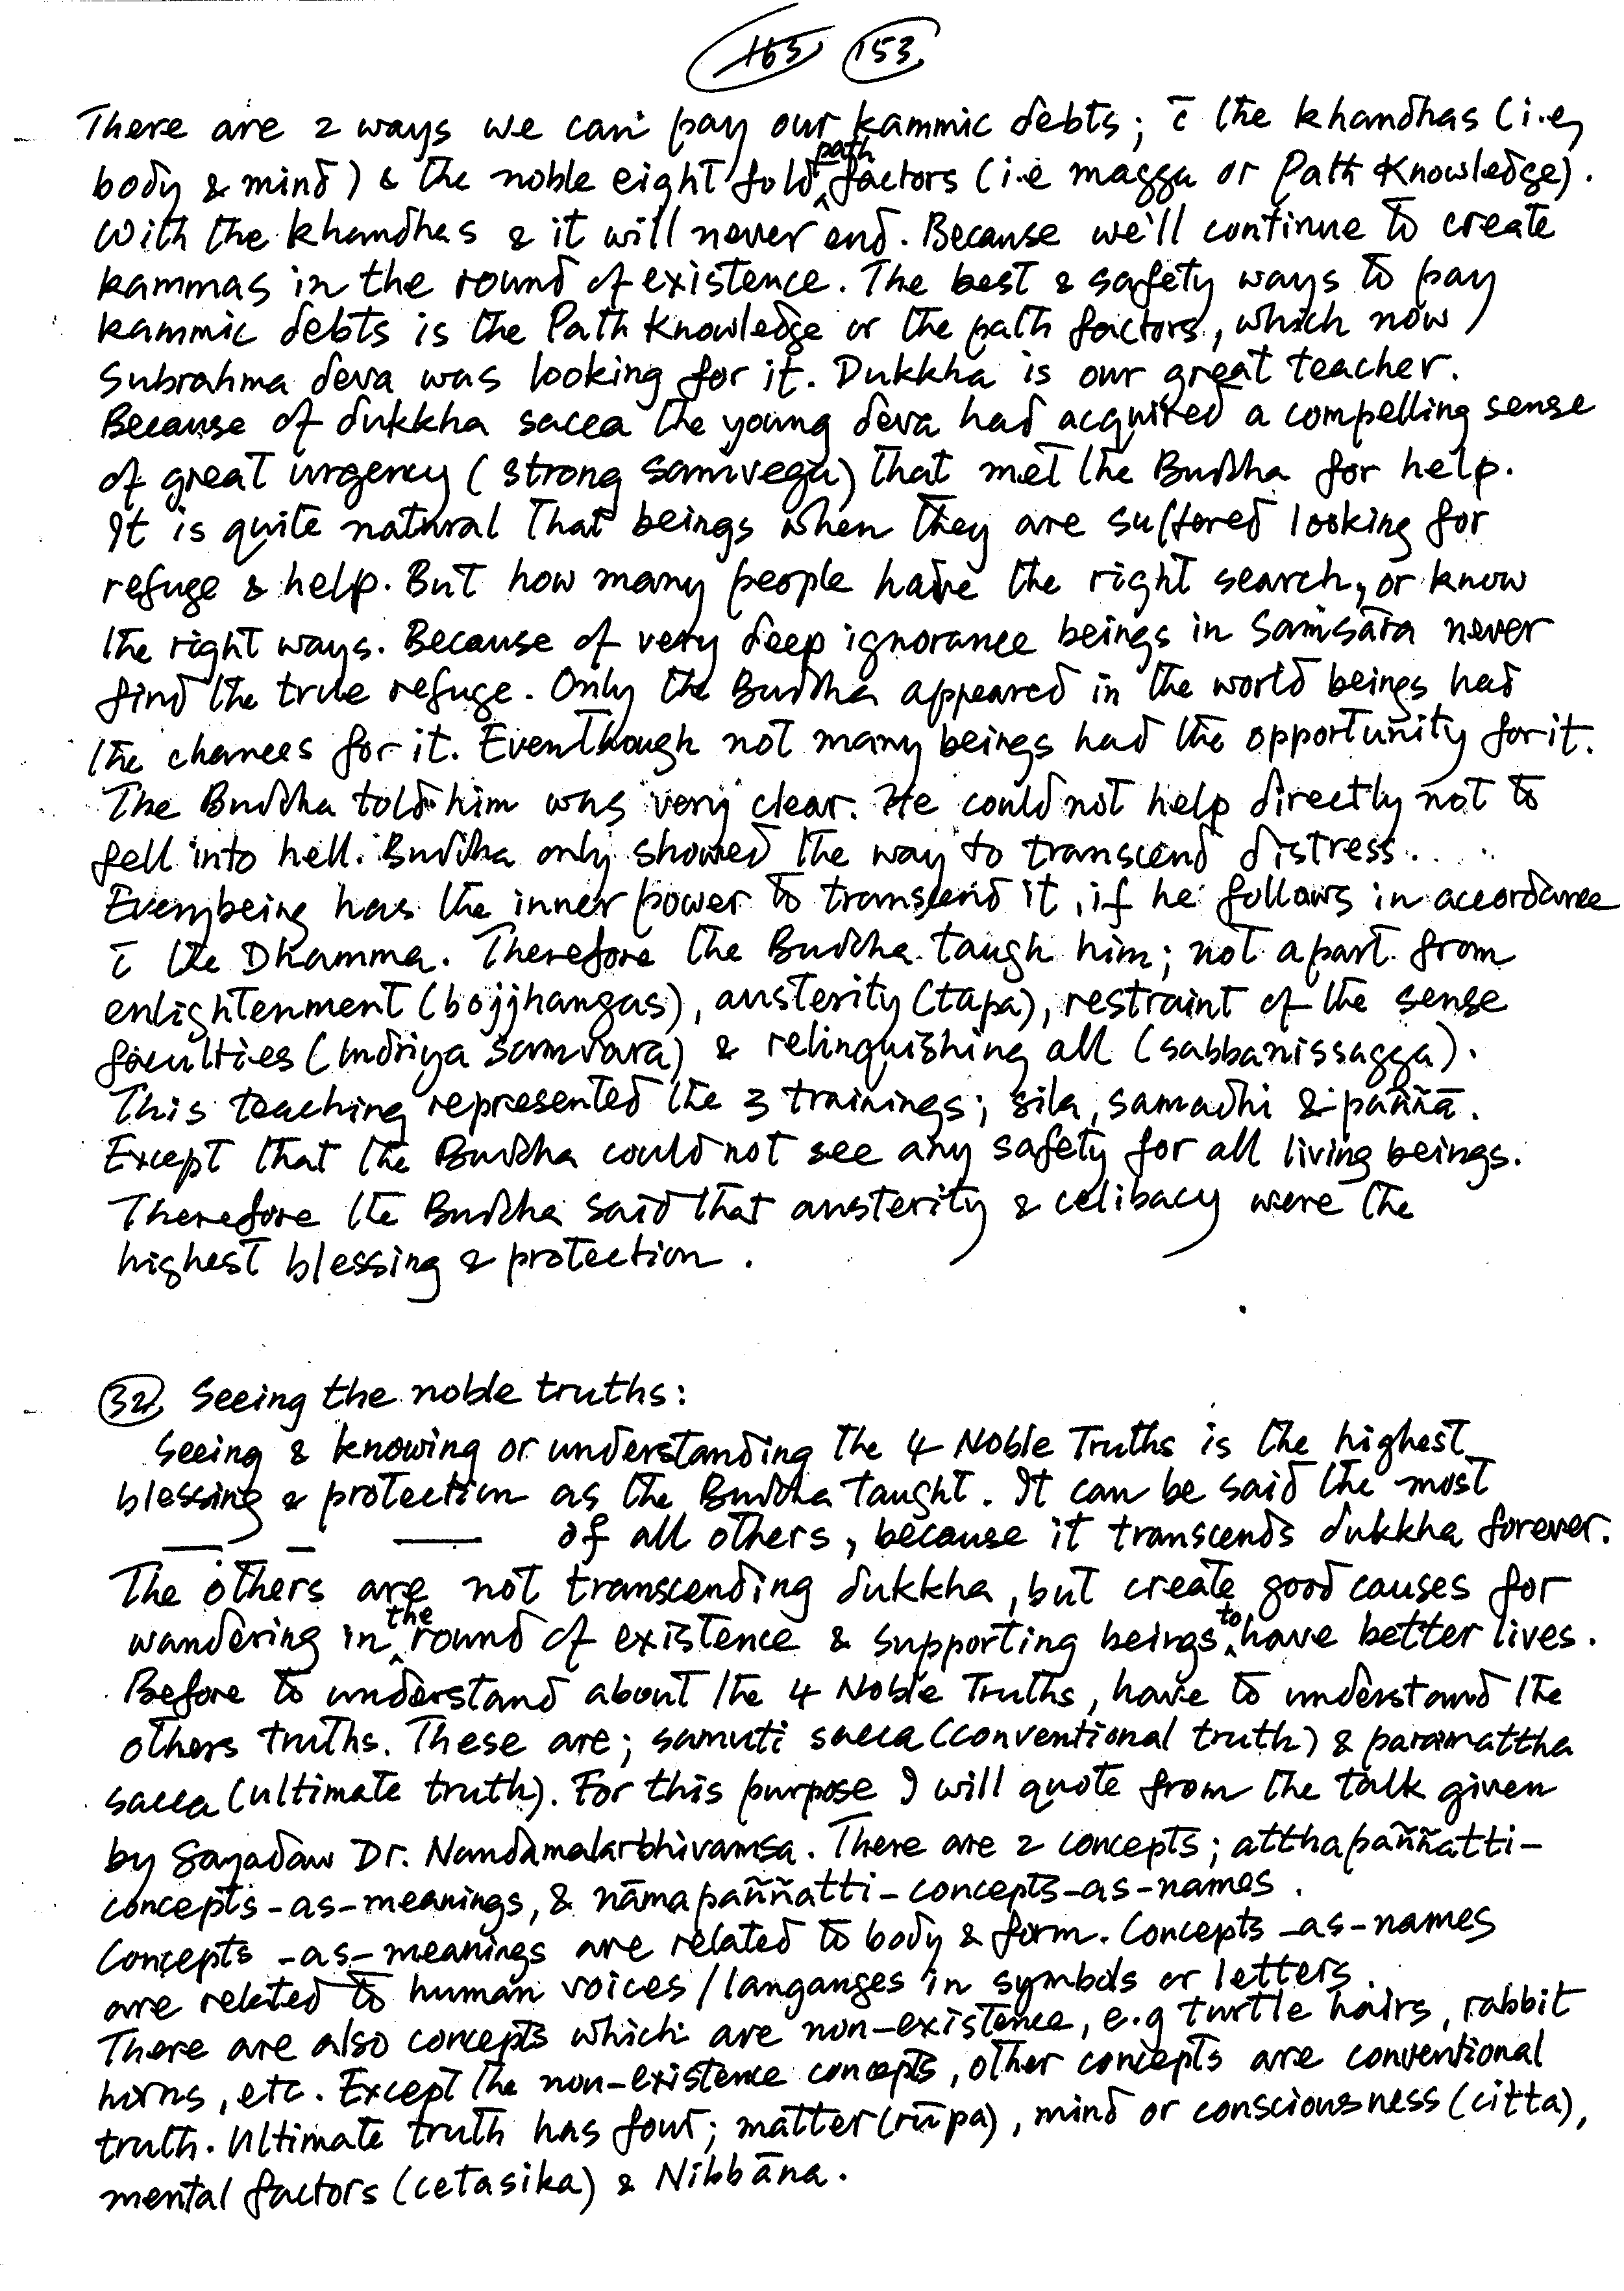 165 153
There are 2 ways we can pay our kammic debts; c̄ the khandhas (i.e,
body & mind) & the noble eight fold path factors (i.e magga or Path Knowledge).
With the khandhas & it will never end. Because we'll continue to create
kammas in the round of existence. The best & safety ways to pay
kammic debts is the Path Knowledge or the path factors, which now
Subrahma deva was looking for it. Dukkha is our great teacher.
Because of dukkha sacca the young deva had acquired a compelling sense
of great urgency (strong samvega) that met the Buddha for help.
It is quite natural that beings when they are suffered looking for
refuge & help. But how many people have the right search, or know
the right ways. Because of very deep ignorance beings in Saṁsāra never
find the true refuge. Only the Buddha appeared in the world beings had
the chances for it. Eventhough not many beings had the opportunity for it.
The Buddha told him was very clear. He could not help directly not to
fell into hell. Buddha only showed the way to transcend distress....
Everybeing has the inner power to transcend it, if he follows in accordance
c̄ the Dhamma. Therefore the Buddha taugh him; not apart from
enlightenment (bojjhangas), austerity (tapa), restraint of the sense
faculties (Indriya Samvara) & relinquishing all (sabbanissagga).
This teaching represented the 3 trainings; sila, samadhi & paññā.
Except that the Buddha could not see any safety for all living beings.
Therefore the Buddha said that austerity & celibacy were the
highest blessing & protection.
32, Seeing the noble truths:
Seeing & knowing or understanding the 4 Noble Truths is the highest
blessing & protection as the Buddha taught. It can be said the most
of all others, because it transcends dukkha forever.
The others are not transcending dukkha, but create good causes for
wandering in the round of existence & supporting beings to have better lives.
Before to understand about the 4 Noble Truths, have to understand the
others truths. These are; samuti sacca (conventional truth) & paramattha
sacca (ultimate truth). For this purpose I will quote from the talk given
by Sayadaw Dr. Nandamalarbhivamsa. There are 2 concepts; atthapaññatti-
concepts-as-meanings, & nāmapaññatti-concepts-as-names.
Concepts -as-meanings are related to body & form. Concepts -as-names
are related to human voices/langanges in symbols or letters.
There are also concepts which are non-existence, e.g turtle hairs, rabbit
horns, etc. Except the non-existence concepts, other concepts are conventional
truth. Ultimate truth has four; matter (rūpa), mind or consciousness (citta),
mental factors (cetasika) & Nibbāna.